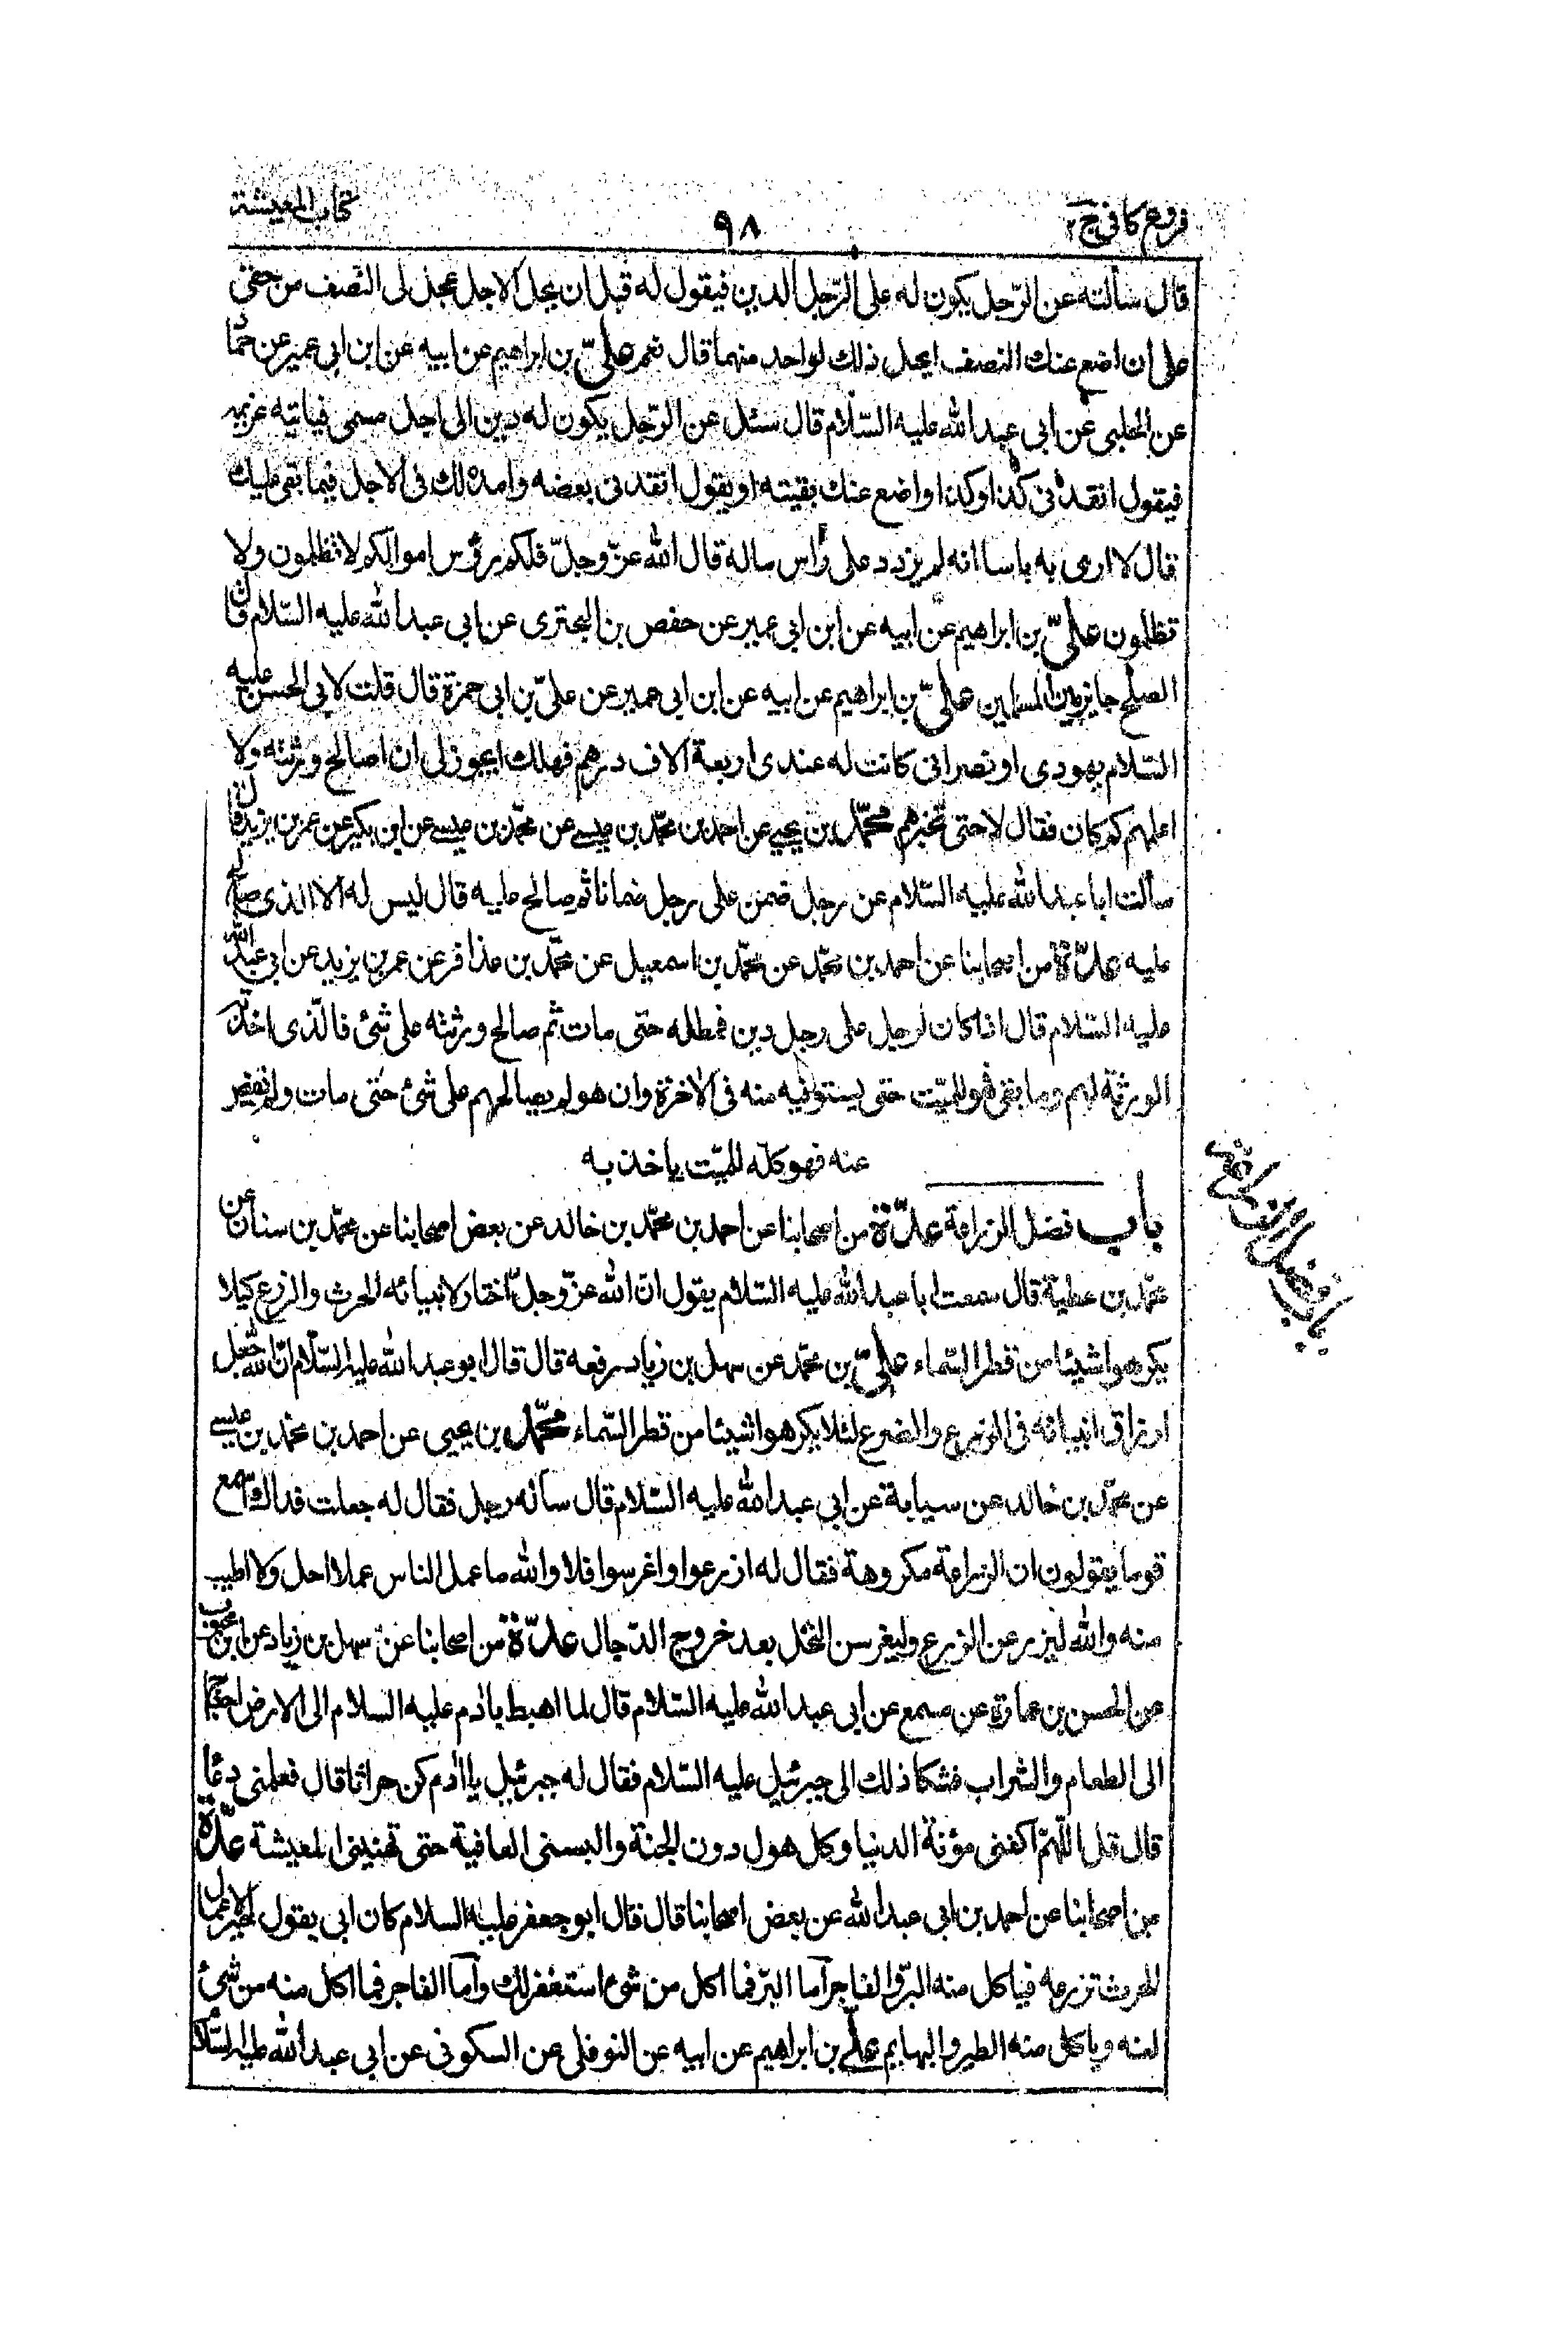 فروع كافى ج ٢
٩٨
كتاب المعيشة
قال سألته عن الرّجل يكون له على الرّجل الدين فيقول له قبل ان يحل الاجل عجل لى النّصف من حقى
على ان اضع عنك النصف ايحل ذلك لواحد منهما قال نعم علىّ بن ابراهيم عن ابيه عن ابن ابى عمير عن حمّاد
عن الحلبى عن ابى عبد الله عليه السّلام قال سئل عن الرّجل يكون له دين الى اجل مسمى فياتيه غريمه
فيقول انقدنى كذا وكذا واضع عنك بقيته او يقول انقدنى بعضه وامد لك فى الاجل فيما بقى عليك
قال لا ارى به باسا انه لم يزدد على رأس ماله قال الله عزّ وجلّ فلكم رؤس اموالكم لا تظلمون ولا
تظلمون علىّ بن ابراهيم عن ابيه عن ابن ابى عمير عن حفص بن البحترى عن ابى عبد الله عليه السّلام قال
الصلح جايز بين المسلمين علىّ بن ابراهيم عن ابيه عن ابن ابى عمير عن علىّ بن ابى حمزة قال قلت لابى الحسن عليه
السّلام يهودى او نصرانى كانت له عندى اربعة الاف درهم فهلك ايجوز لى ان اصالح ورثته ولا
اعلمهم كم كان فقال لا حتى تخبرهم محمّد بن يحيى عن احمد بن محمّد بن عيسى عن محمّد بن عيسى عن ابن بكير عن عمر بن يزيد قال
سألت ابا عبد الله عليه السّلام عن رجل ضمن على رجل ضمانا ثم صالح عليه قال ليس له الا الذى صالح
عليه عدّة من اصحابنا عن احمد بن محمّد عن محمّد بن اسمعيل عن محمّد بن عذافر عن عمر بن يزيد عن ابى عبد الله
عليه السّلام قال اذا كان لرجل على رجل دين فمطله حتى مات ثم صالح ورثته على شئ فالّذى اخذته
الورثة لهم وما بقى فهو للميّت حتى يستوفيه منه فى الاخرة وان هو لم يصالحهم على شئ حتى مات ولم يقض
عنه فهو كلّه للميّت ياخذ به
باب فضل الزراعة عدّة من اصحابنا عن احمد بن محمّد بن خالد عن بعض اصحابنا عن محمّد بن سنان عن
محمّد بن عطية قال سمعت ابا عبد الله عليه السّلام يقول انّ الله عزّ وجلّ اختار لانبيائه الحرث والزرع كيلا
يكرهوا شيئا من قطر السّماء علىّ بن محمّد عن سهل بن زياد رفعه قال قال ابو عبد الله عليه السّلام انّ الله جعل
ارزاق انبيائه فى الزرع والضرع لئلا يكرهوا شيئا من قطر السّماء محمّد بن يحيى عن احمد بن محمّد بن عيسى
عن محمّد بن خالد عن سيابة عن ابى عبد الله عليه السّلام قال سأله رجل فقال له جعلت فداك اسمع
قوما يقولون ان الزراعة مكروهة فقال له ازرعوا واغرسوا فلا والله ما عمل الناس عملا احل ولا اطيب
منه والله ليزرعن الزرع وليغرسن النخل بعد خروج الدّجال عدّة من اصحابنا عن سهل بن زياد عن ابن محبوب
عن الحسن بن عمارة عن مسمع عن ابى عبد الله عليه السّلام قال لما اهبط بادم عليه السلام الى الارض احتاج
الى الطعام والشراب فشكا ذلك الى جبرئيل عليه السّلام فقال له جبرئيل يا ادم كن حراثا قال فعلمنى دعاء
قال قل اللّهمّ اكفنى مؤنة الدنيا وكل هول دون الجنة والبسنى العافية حتى تهنينى المعيشة عدّة
من اصحابنا عن احمد بن ابى عبد الله عن بعض اصحابنا قال قال ابو جعفر عليه السلام كان ابى يقول خير الاعمال
الحرث تزرعه فياكل منه البرّ والفاجر اما البرّ فما اكل من شئ استغفر لك واما الفاجر فما اكل منه من شئ
لعنه وياكل منه الطير والبهايم علىّ بن ابراهيم عن ابيه عن النوفلى عن السكونى عن ابى عبد الله عليه السّلام
باب فضل الزراعة